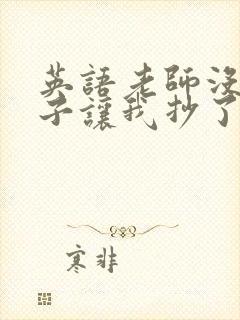 英語老師沒
子讓我抄了
寒非